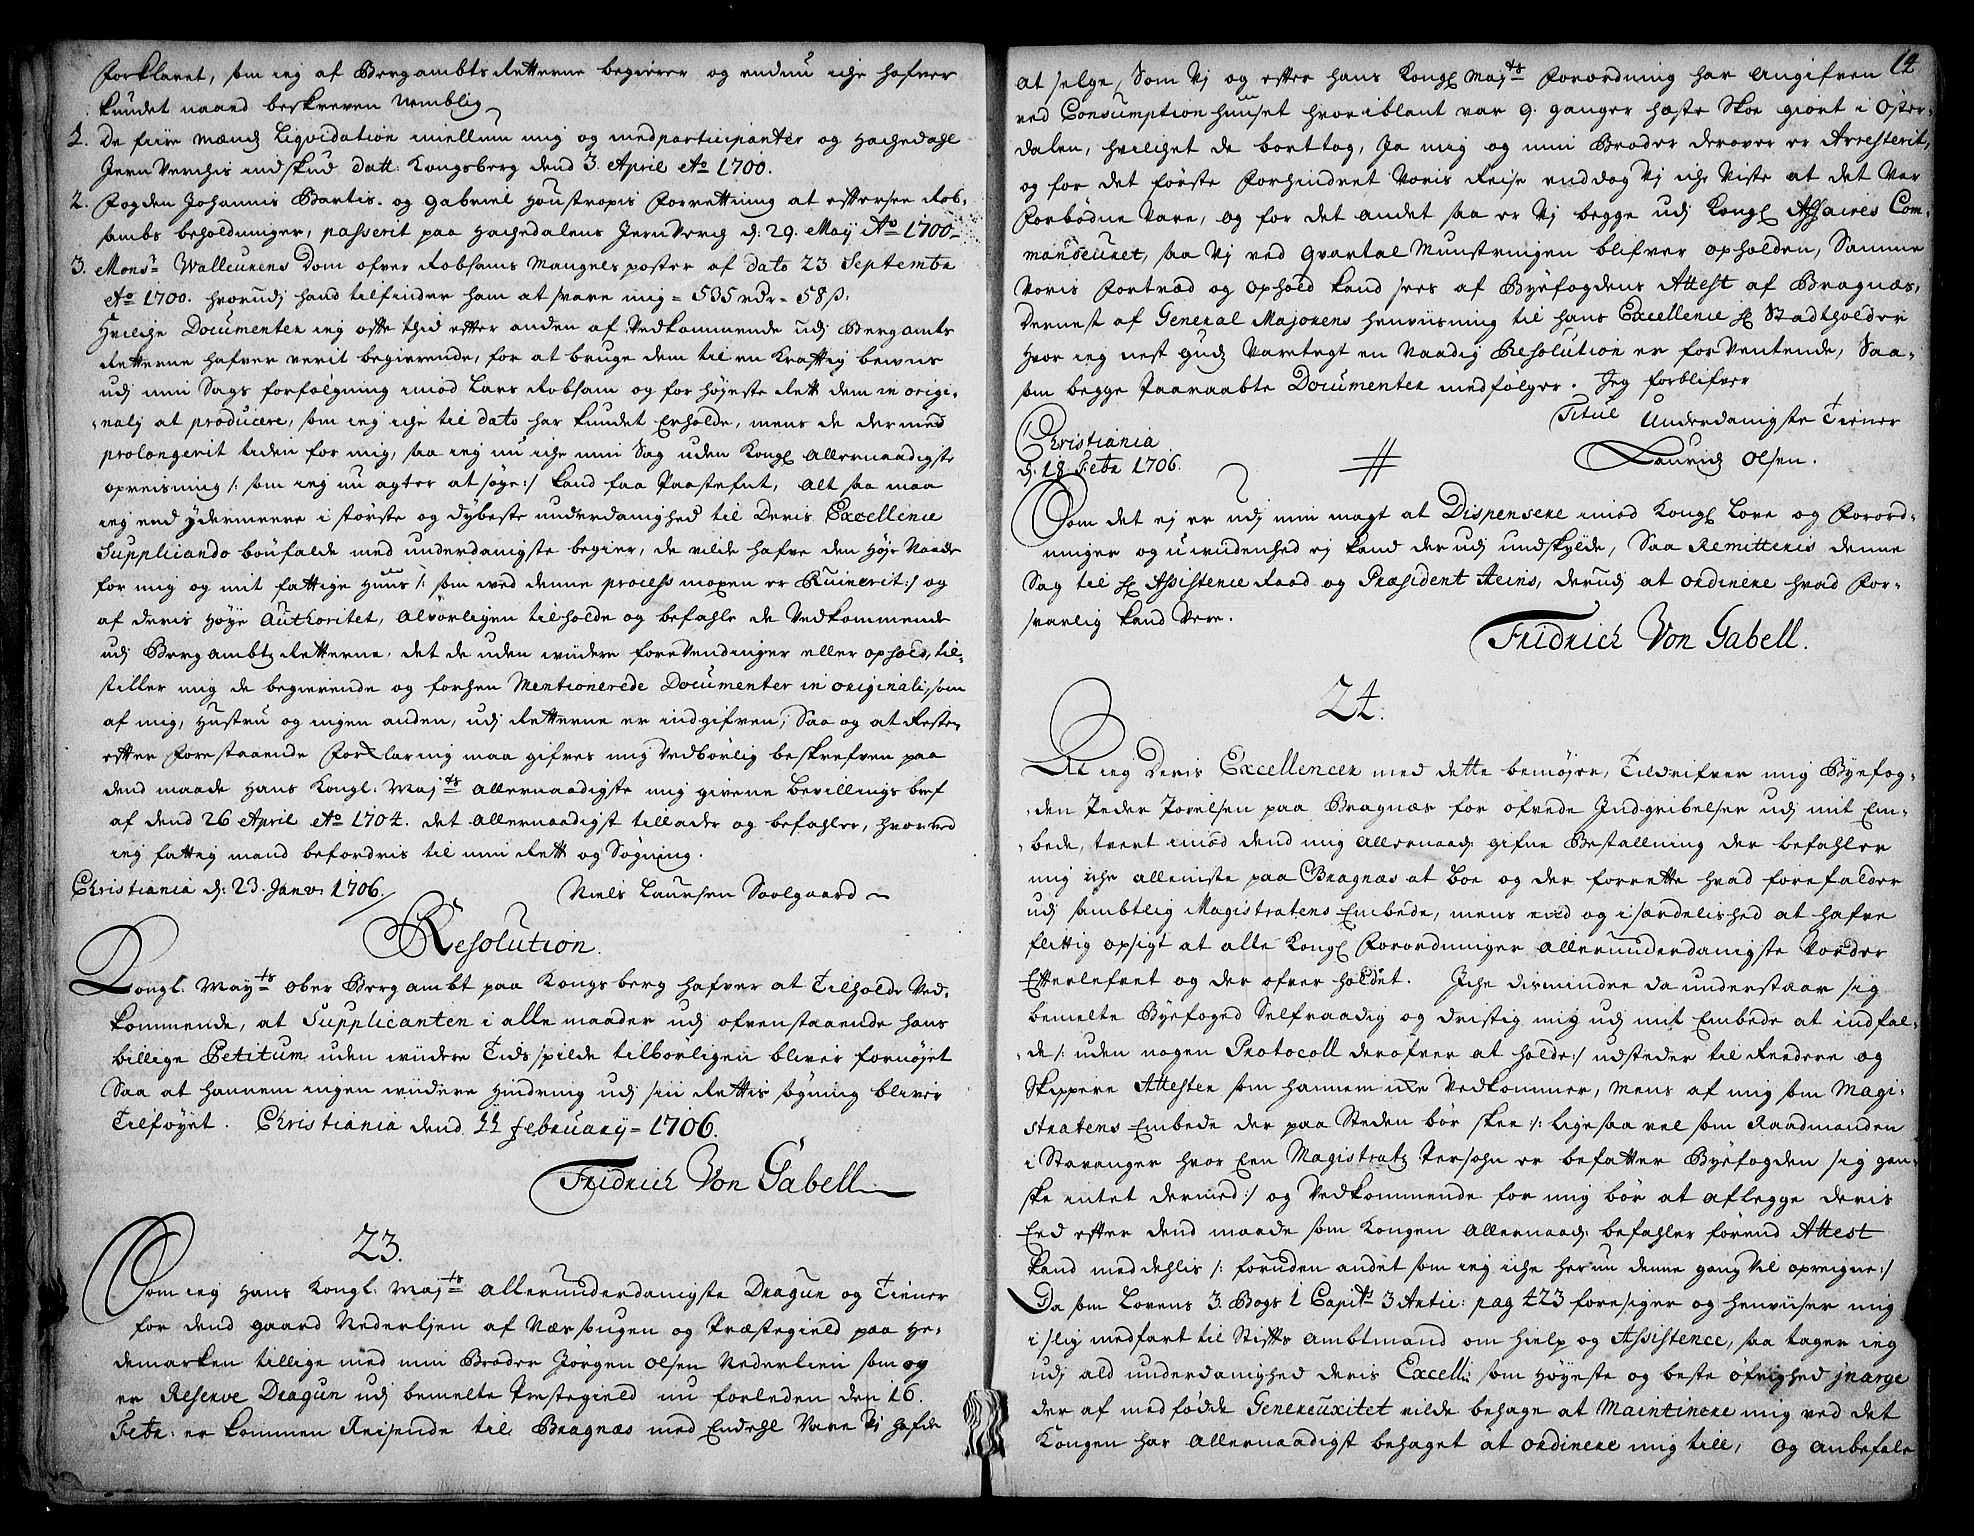 forklaret, som ieg af Bergambts Retterne begierer og endnu iche hafver
kundet naaed beskreven Nemblig
1. De fiire Mænds Liqvidation imellum mig og medparticipanter og Hachedahl
Jern Verchis indskud datt: Kongsberg dend 3. April Ao 1700.
2. Fogden Johannis Bartis. og Gabriel Houstropis forrettning at effterse Rob-
sambs beholdninger, passerit paa Hachedalens Jern Verch d: 29. Maij Ao 1700
3. Monsr Walleurens Dom ofver Robsams Mangels poster af dato 23 Septembr
Ao 1700. hvorudj hand tilfinder ham at svare mig = 535 rdr = 58 s.
Hvilche Documenter ieg offte thid effter anden af Vedkommende udj Bergamts
Retterne hafver verit begierende, for at bruge dem til en krafftig beviis
udj min Sags forfølgning imod Lars Robsam og for høyeste Rett dem in origi-
nalj at producere, som ieg iche til dato har kundet Erholde, mens de dermed
prolongerit tiden for mig, saa ieg nu iche min Sag uden Kongl Allernaadigste
opreisning /: som ieg nu agter at søge :/ kand faa Paastefnt, alt saa maa
ieg end ydermeere i største og dybeste underdanighed til Deris Excellence
Supplicando bönfalde med underdanigste begier, de vilde hafve den Höje Naade
for mig og mit fattige Huus /: som ved denne process mopen er Ruinerit :/ og
af deris Høye Authoritet, alvorligen tilholde og befahle de Vedkommende
udj Bergambtz Retterne, det de uden viidere forevendinger eller ophold, til-
stiller mig de begierende og forhen Mentionerede Documenter in originali, som
af mig, Hustru og ingen anden, udj Retterne er indgifven, Saa og at Reste-
effter forestaaende forklaring maa gifves mig Vedbörlig beskrefven paa
dend maade Hans Kongl: Majts allernaadigste mig givene bevillings bref
af dend 26 April Ao 1704. det allernaadigst tillader og befahler, hvorved
ieg fattig mand befordris til min Rett og Søgning.
Christiania d: 23. Janv: 1706. Niels Laursen Soolgaard
Resolution.
Kongl: Mayts Ober Berg ambt paa Kongsberg hafver at Tilholde Ved-
kommende, at Supplicanten i alle maader udj ofvenstaaende hans
billige Petitum uden viidere Tids spilde tilbörligen bliver fornøyet
Saa at hannem ingen viidere Hindring udj sin Rettis søgning bliver
Tilføyet. Christiania dend 11 february = 1706.
Fridrich Von Gabell
23.
Som ieg Hans Kongl: Majts allerunderdanigste Dragun og Tiener
for dend gaard Nederlien af Næs Sugen og Præstegield paa He-
demarken tillige med min Broder Jörgen Olsen Nederlien som og
er Reserve Dragun udj bemelte Præstegield nu forleden den 16.
Febr: er kommen Reisende til Bragnæs med Endehl Vare Vj hafde
14
at selge, Som Vj og effter hans Kongl Majts Forordning har angifven
ved Consumption huuset hvoriblant var 9. ganger hæste Skoe giort i Öster-
dalen, hvilchet de borttog, Ja mig og min Broder derover er Arresterit,
og for det förste forhindret Voris Reise enddog Vj iche Viste at det Var
forbödne Vare, og for det andet saa er Vj begge udj Kongl Affaires Com-
mandeuret, saa Vj ved Qvartal Munstringen blifver opholden, Samme
Voris Fortræd og ophold kand sees af Byefogdens Attest af Bragnæs,
dernest af General Majorens henviisning til hans Excellence Hr Stadtholder
hvor ieg nest Guds Varetegt en naadig Resolution er forventende, Saa-
som begge Paaraabte Documenter medfølger. Jeg forblifver
Titul Underdanigste Tiener
Christiania
d: 18 Febr 1706. Laurids Olsen.
Som det ej er udj min magt at Dispensere imod Kongl Love og Forord-
ninger og uvidenhed ej kand der udj undskylde, Saa Remitteris denne
Sag til Hr Assistence Raad og Præsident Reins, derudj at ordinere hvad for-
svarlig kand Vere.
Fridrich Von Gabell.
24.
At ieg Deris Excellencer med dette bemøyer, Tildrifver mig Byefog-
den Peder Porelsen paa Bragnæs for øfvede Jndgribelser udj mit Em-
bede, tvert imod dend mig allernaad: gifne Bestallning der befahler
mig iche alleniste paa Bragnæs at boe og der forrette hvad forefalder
udj samblig Magistratens Embede, mens end og i særdelished at hafve
flittig opsigt at alle Kongl Forordninger allerunderdanigste vorder
Efterlefvet og der ofver holdet. Iche dismindre da understaar sig
bemelte Byefoged Selfraadig og dristig mig udj mit Embede at indfal-
de /: uden nogen Protocoll derofver at holde :/ udsteder til Reedere og
Skippere Attester som hannem iche Vedkommer, mens af mig som Magi-
stratens Embede der paa Steden bör skee /: ligesaa vel som Raadmanden
i Stavanger hvor Een Magistratz Persohn er befatter Byefogden sig gan-
ske intet dermed :/ og Vedkommende for mig bör at aflegge deris
Eed effter dend maade som Kongen allernaad: befahler förend Attest
kand meddehlis /: foruden andet som ieg iche her nu denne gang Vil opreigne :/
Da som Lovens 3. Bogs 1 Capit: 3 Artic: pag 423 foresiger og henviiser mig
i slig medfart til Stifts ambtmand om Hielp og Assistence, saa tager ieg
udj ald underdanighed Deris Excell: som Höyeste og beste øfrighed in arge
der af medfödde Genereuxitet vilde behage at Maintinere mig ved det
Kongen har allernaadigst behaget at ordinere mig till, og anbefale